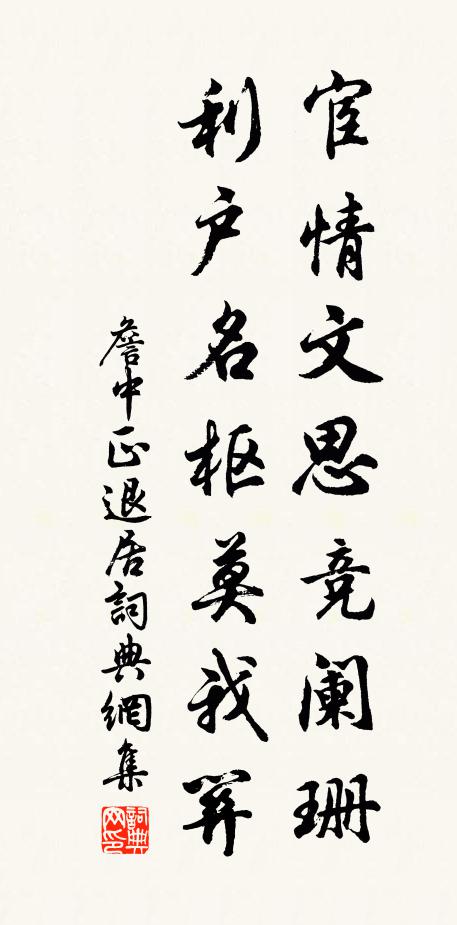 宦情文思竞阑珊
利户名枢莫我关
詹中正退居詞典網集
詞典
网印